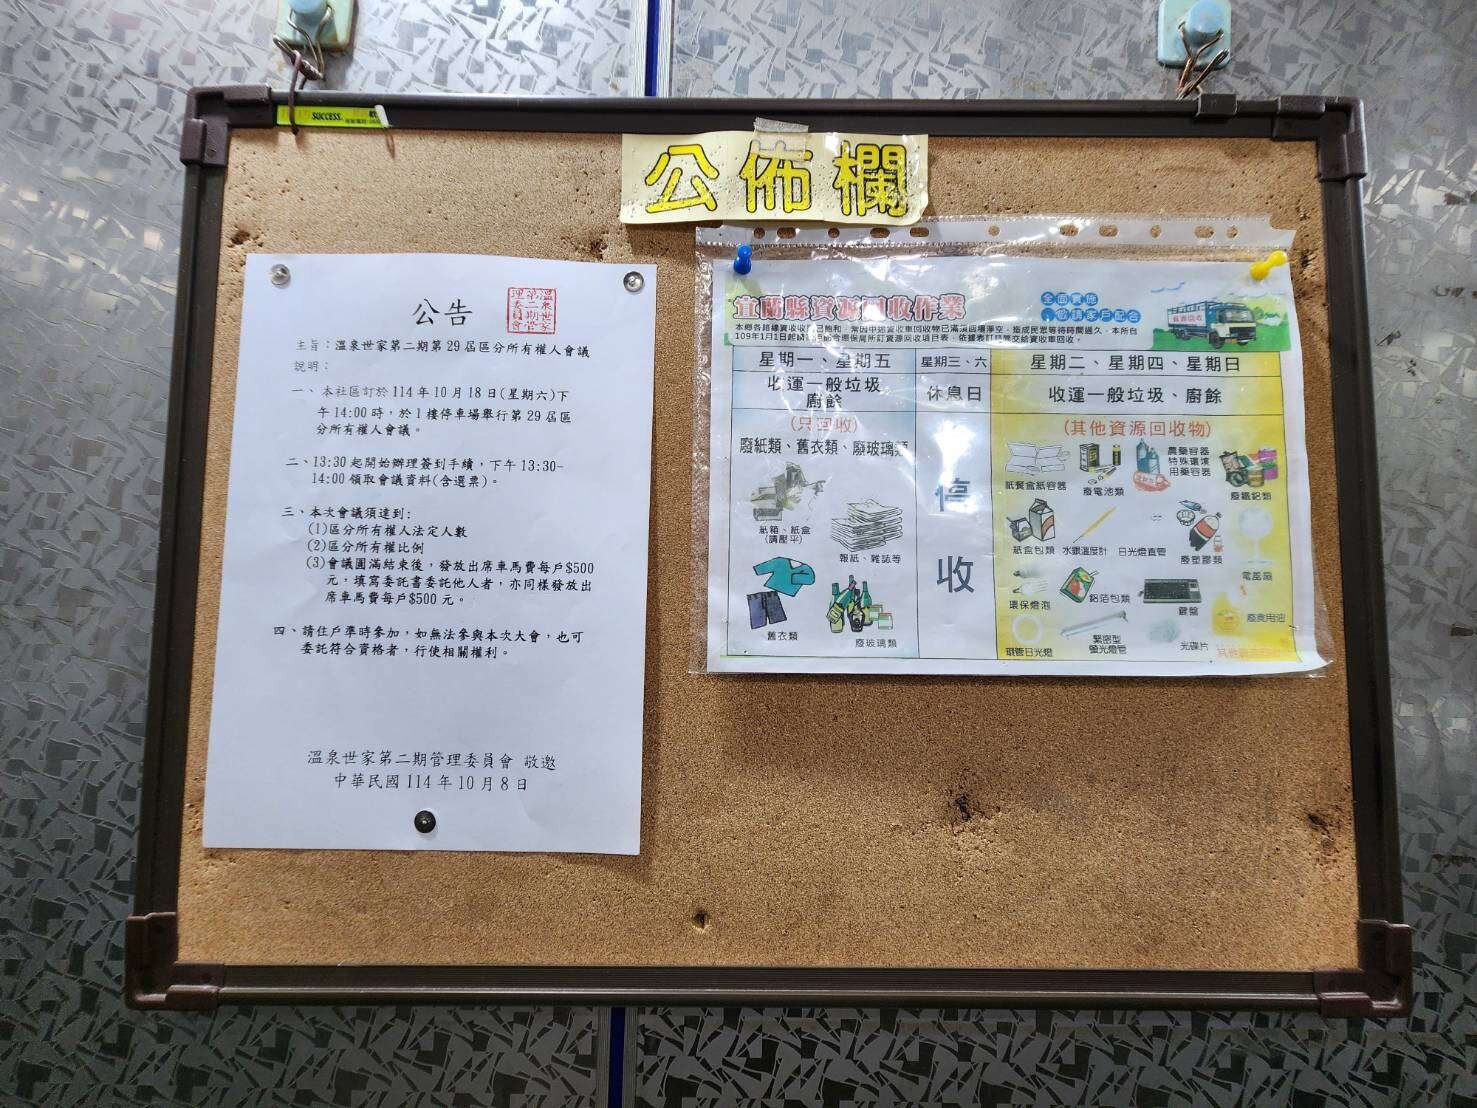 SUCCESS
公佈欄
公告
溫泉世家
第二期管
理委員會
主旨：溫泉世家第二期第29屆區分所有權人會議
說明：
一、本社區訂於114年10月18日(星期六)下
午14:00時，於1樓停車場舉行第29屆區
分所有權人會議。
二、13:30起開始辦理簽到手續，下午13:30-
14:00領取會議資料(含選票)。
三、本次會議須達到:
(1)區分所有權人法定人數
(2)區分所有權比例
(3)會議圓滿結束後，發放出席車馬費每戶$500
元，填寫委託書委託他人者，亦同樣發放出
席車馬費每戶$500元。
四、請住戶準時參加，如無法參與本次大會，也可
委託符合資格者，行使相關權利。
溫泉世家第二期管理委員會 敬邀
中華民國114年10月8日
宜蘭縣資源回收作業
全面實施
敬請家戶配合
資源回收
109年1月1日起
星期一、星期五
星期三、六
星期二、星期四、星期日
收運一般垃圾
廚餘
休息日
收運一般垃圾、廚餘
(只回收)
廢紙類、舊衣類、廢玻璃類
紙箱、紙盒
(請壓平)
報紙、雜誌等
舊衣類
廢玻璃類
停
收
(其他資源回收物)
紙餐盒紙容器
廢電池類
農藥容器
特殊環境
用藥容器
廢鐵鋁類
紙盒包類
水銀溫度計
日光燈直管
廢塑膠類
環保燈泡
鋁箔包類
鍵盤
廢食用油
環管日光燈
緊密型
螢光燈管
光碟片